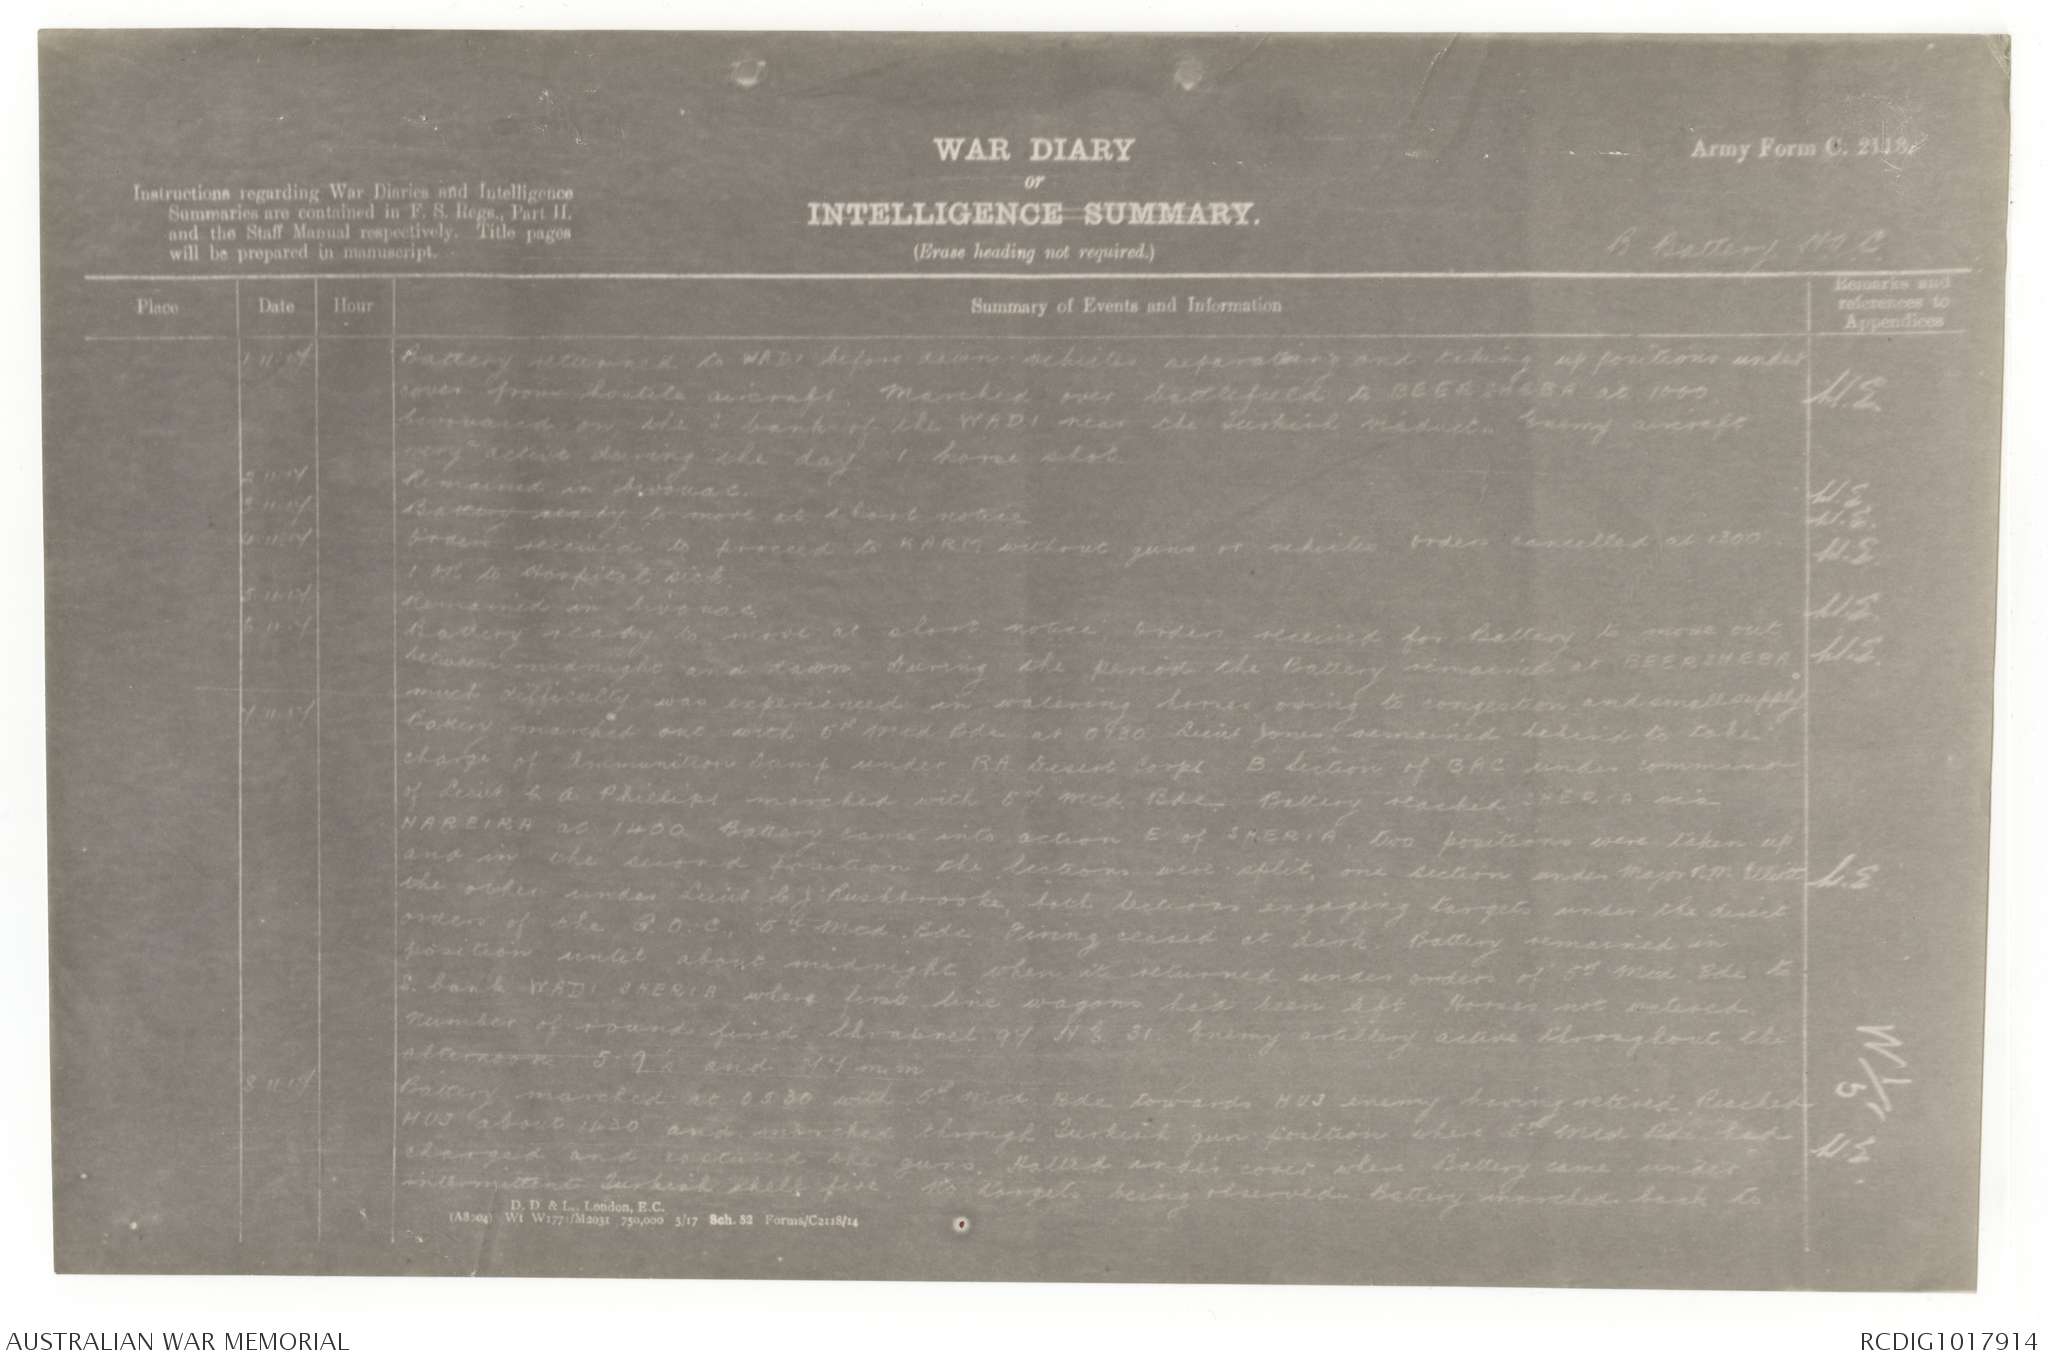 WAR DIARY
or
INTELLIGENCE SUMMARY.
(Erase heading not required.)
Army Form C. 2118.
Instructions regarding War Diaries and Intelligence
Summaries are contained in F. S. Regs., Part II.
and the Staff Manual respectively. Title pages
will be prepared in manuscript.
B Battery HAC
Place
Date
Hour
Summary of Events and Information
Remarks and
references to
Appendices
1.11.17 Battery returned to WADI before dawn vehicles separating and taking up positions under
cover from hostile aircraft. Marched over battlefield to BEERSHEBA at 1000
bivouaced on the S bank of the WADI near the Turkish viaduct. Enemy aircraft
very active during the day 1 horse shot
2.11.17 Remained in bivouac.
3.11.17 Battery ready to move at short notice
4.11.17 Orders received to proceed to KARM without guns or vehicles orders cancelled at 1300
1 OR to Hospital sick.
5.11.17 Remained in bivouac
6.11.17 Battery ready to move at short notice orders received for Battery to move out
between midnight and dawn During the period the Battery remained at BEERSHEBA
much difficulty was experienced in watering horses owing to congestion and small supply
7.11.17 Battery marched out with 5th Mtd Bde at 0930 Lieut Jones remained behind to take
charge of Ammunition Dump under RA Desert Corps B Section of BAC under command
of Lieut Phillips marched with 5th Mtd Bde. Battery reached SHERIA via
HAREIRA at 1400 Battery came into action E of SHERIA. two positions were taken up
and in the second position the Sections were split, one section under Major Elliott
the other under Lieut Rushbrooke, both sections engaging targets under the direct
orders of the G.O.C., 5th Mtd Bde Firing ceased at dark. Battery remained in
position until about midnight when it returned under orders of 5th Mtd Bde to
S. bank WADI SHERIA where first line wagons had been left Horses not watered.
Number of rounds fired Shrapnel 97 HE 31. Enemy artillery active throughout the
afternoon 5.9's and 77 mm
8.11.17 Battery marched at 0530 with 5th Mtd Bde towards HUJ enemy having retired Reached
HUJ about 1430 and marched through Turkish gun position where 5th Mtd Bde had
charged and captured the guns. Halted under cover where Battery came under
intermittent Turkish shell fire. No targets being observed Battery marched back to
D. D. & L., London, E.C.
(A8004) Wt W1771/M2031 750,000 5/17 Sch. 52 Forms/C2118/14
AUSTRALIAN WAR MEMORIAL
RCDIG1017914